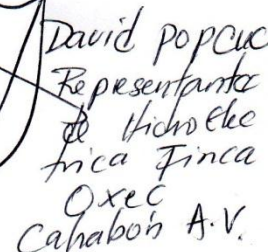 David popcuc
Representante
de Hidroelec
trica Finca
Oxec
Cahabón A.V.